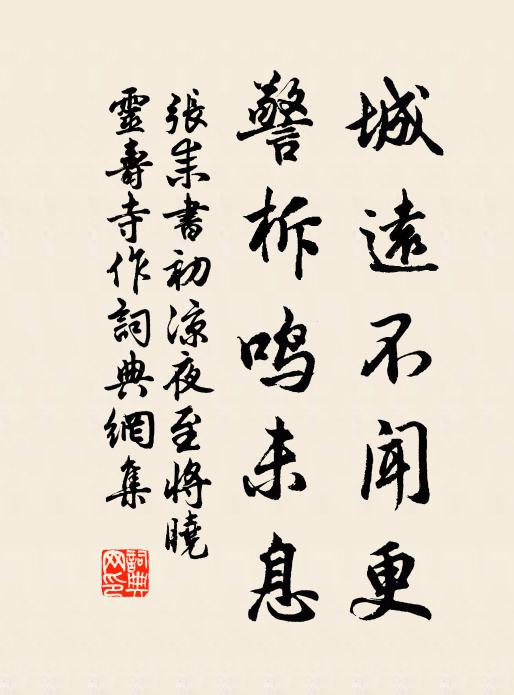 城遠不闻更
警柝鳴未息
張耒書初涼夜至將曉
靈壽寺作詞典網集
詞典网印